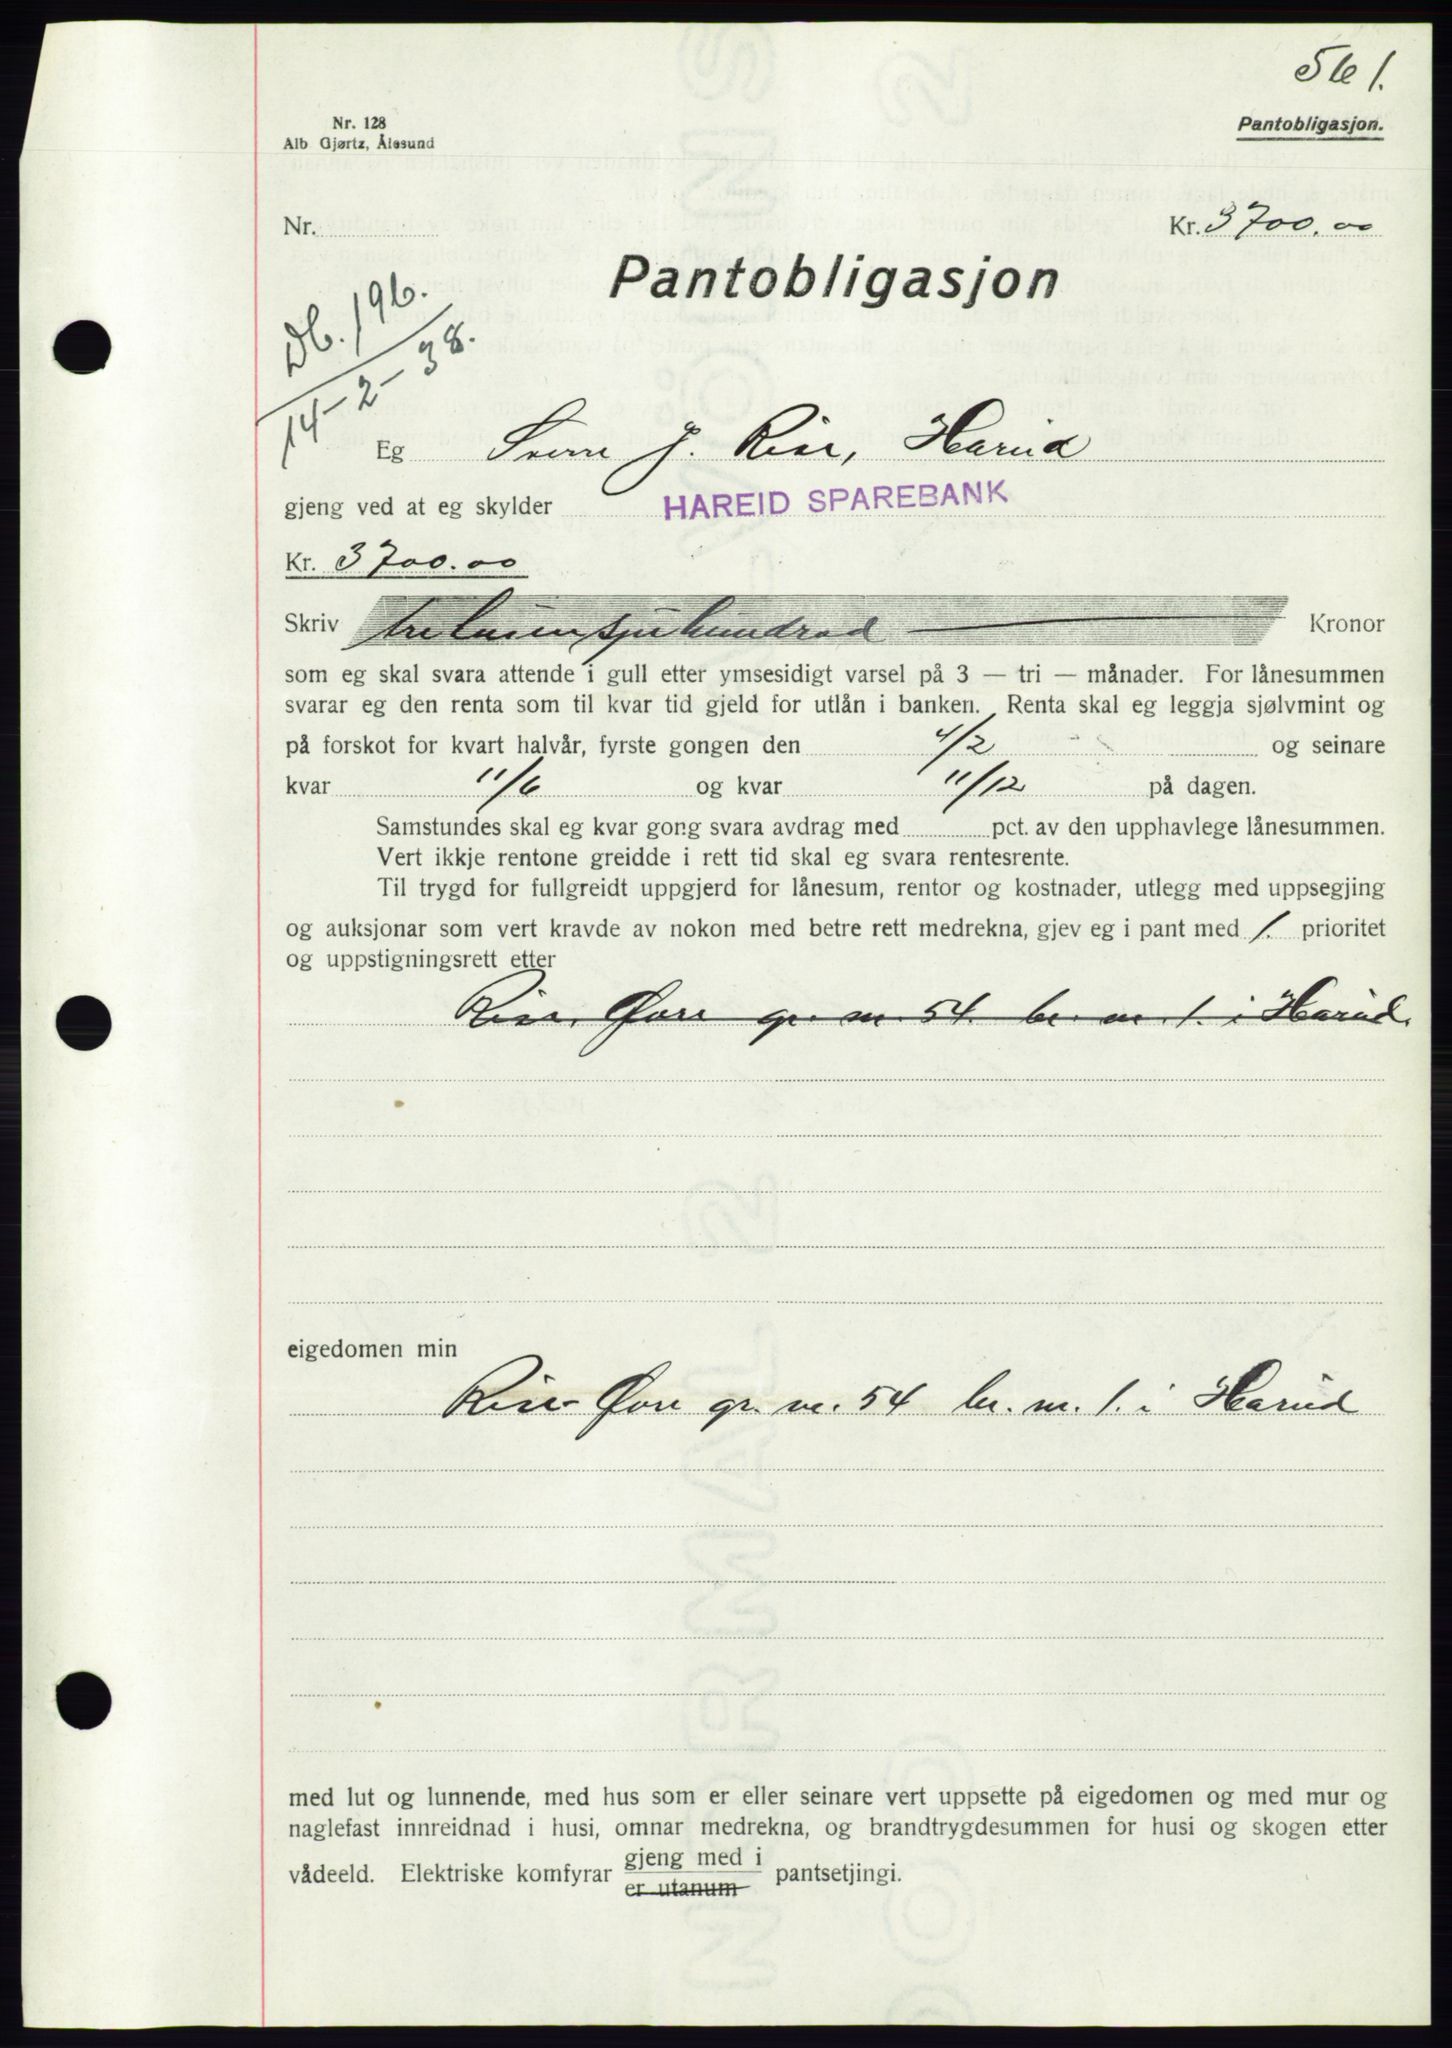 561.
Nr. 128
Alb Gjørtz, Ålesund
Pantobligasjon.
Nr.
Kr. 3700.00
Pantobligasjon
Db. 196.
14-2-38.
Eg Sverre J. Rise, Hareid
gjeng ved at eg skylder HAREID SPAREBANK
Kr. 3700.00
Skriv tretusensjuhundrad Kronor
som eg skal svara attende i gull etter ymsesidigt varsel på 3 — tri — månader. For lånesummen
svarar eg den renta som til kvar tid gjeld for utlån i banken. Renta skal eg leggja sjølvmint og
på forskot for kvart halvår, fyrste gongen den 4/2 og seinare
kvar 11/6 og kvar 11/12 på dagen.
Samstundes skal eg kvar gong svara avdrag med pct. av den upphavlege lånesummen.
Vert ikkje rentone greidde i rett tid skal eg svara rentesrente.
Til trygd for fullgreidt uppgjerd for lånesum, rentor og kostnader, utlegg med uppsegjing
og auksjonar som vert kravde av nokon med betre rett medrekna, gjev eg i pant med 1. prioritet
og uppstigningsrett etter
Rise, Øvre gr. nr. 54. br. nr. 1. i Hareid.
eigedomen min
Rise Øvre gr. nr. 54 br. nr. 1. i Hareid
med lut og lunnende, med hus som er eller seinare vert uppsette på eigedomen og med mur og
naglefast innreidnad i husi, omnar medrekna, og brandtrygdesummen for husi og skogen etter
vådeeld. Elektriske komfyrar gjeng med i
er utanum pantsetjingi.